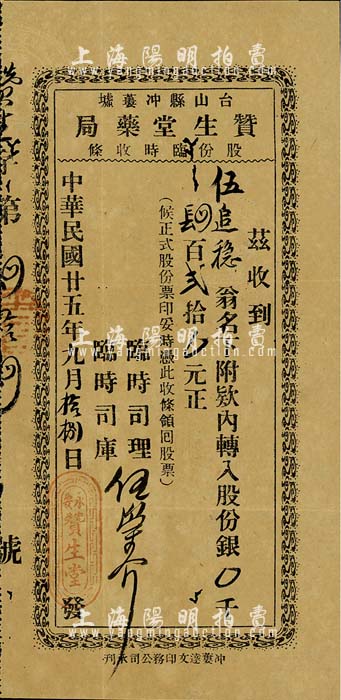 上海陽明拍賣
台山縣冲蔞墟
贊生堂藥局
股份臨時收條
茲收到
伍追稳翁名下附欵內轉入股份銀0千
肆百弍拾元正
(候正式股份票印妥時憑此收條領回股票)
臨時司理
臨時司庫
中華民國廿五年九月拾捌日
贊生堂
發
第
號
冲蔞達文印務公司承刊
上海陽明拍賣
上海陽明拍賣